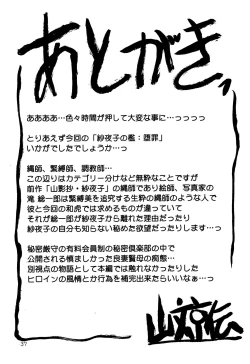 あとがき
ああああ…色々時間が押して大変な事に…っっっっ
とりあえず今回の「紗夜子の檻:堕罪」
いかがでしたでしょうか…っ
縄師、緊縛師、調教師…
この辺りはカテゴリー分けなど無粋なことですが
前作「山影抄・紗夜子」の縄師であり絵師、写真家の
滝 総一郎は緊縛美を追究する生粋の縄師のような人で
彼と今回の和虎では求めるものが違っていて
それが総一郎が紗夜子から離れた理由だったり
紗夜子の自分も知らない秘めた欲望だったりします…っ
秘密厳守の有料会員制の秘密倶楽部の中で
公開される慎ましかった良妻賢母の痴態…
別視点の物語として本編では触れなかったりした
ヒロインの風情とか行為を補完出来たらいいなぁ…っ
37